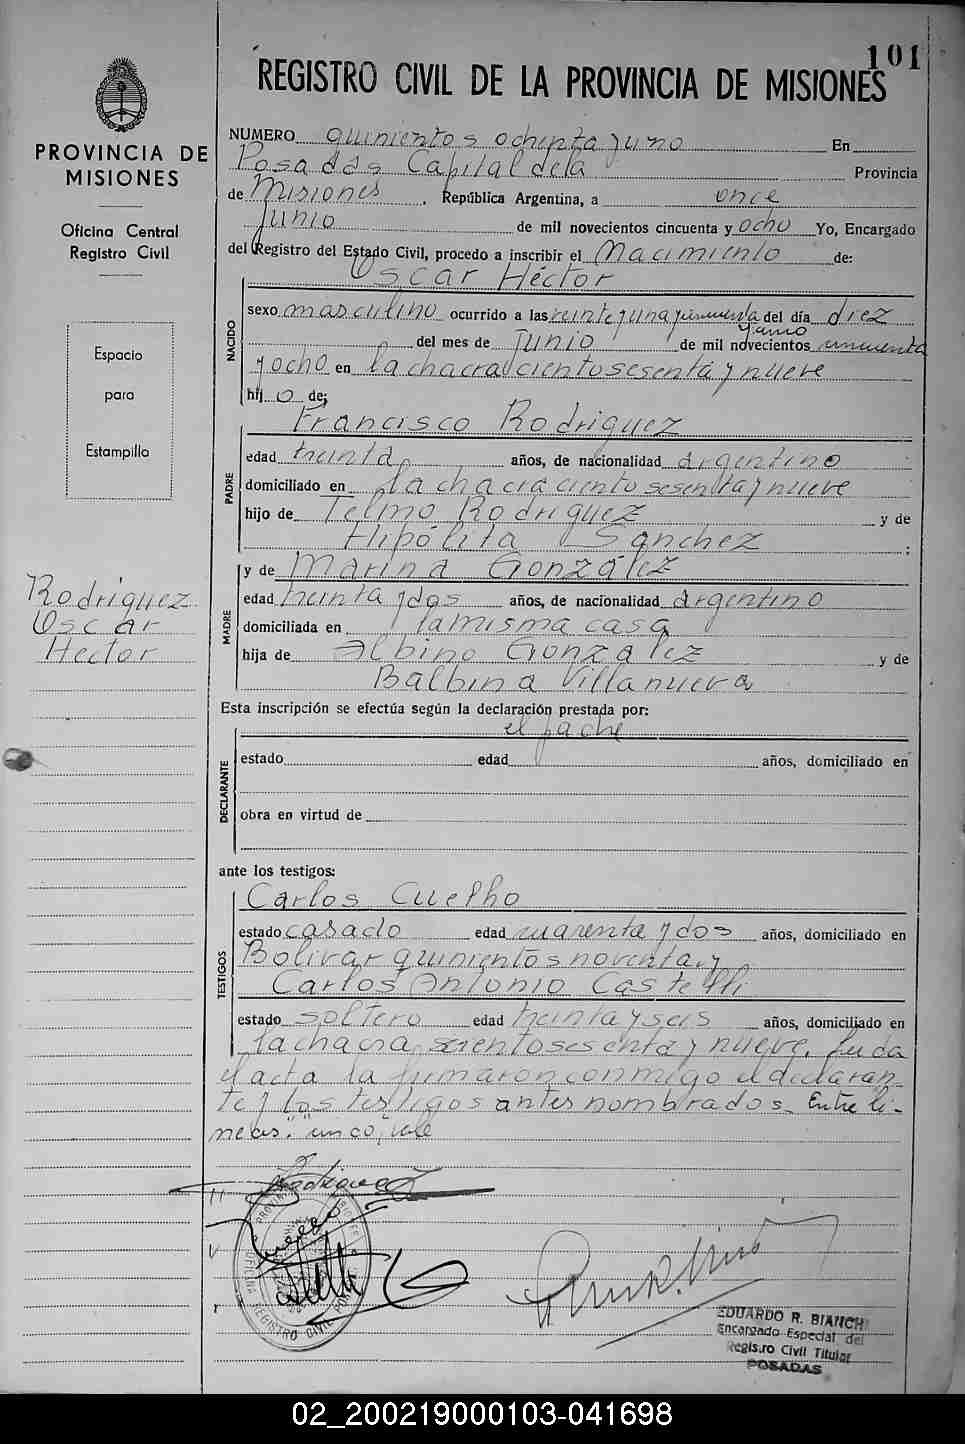 101
REGISTRO CIVIL DE LA PROVINCIA DE MISIONES
PROVINCIA DE
MISIONES
Oficina Central
Registro Civil
Espacio
para
Estampilla
Rodriguez
Oscar
Hector
NUMERO quinientos ochenta y uno En
Posadas Capital de la Provincia
de Misiones, República Argentina, a once
Junio de mil novecientos cincuenta y ocho Yo, Encargado
del Registro del Estado Civil, procedo a inscribir el Nacimiento de:
Oscar Héctor
NACIDO
sexo masculino ocurrido a las veinte y una y cincuenta del día diez
del mes de Junio de mil novecientos cincuenta
y ocho en la chacra ciento sesenta y nueve
hij o de;
Francisco Rodriguez
PADRE
edad treinta años, de nacionalidad argentino
domiciliado en la chacra ciento sesenta y nueve
hijo de Telmo Rodriguez y de
Hipólita Sanchez ;
y de Marina González
MADRE
edad treinta y dos años, de nacionalidad argentino
domiciliada en la misma casa
hija de Albino Gonzalez y de
Balbina Villanueva
Esta inscripción se efectúa según la declaración prestada por:
el padre
DECLARANTE
estado edad años, domiciliado en
obra en virtud de
ante los testigos:
Carlos Cuelho
TESTIGOS
estado casado edad cuarenta y dos años, domiciliado en
Bolivar quinientos noventa y
Carlos Antonio Castelli
estado soltero edad treinta y seis años, domiciliado en
la chacra ciento sesenta y nueve. Leida
el acta la firmaron conmigo el declaran-
te y los testigos antes nombrados. Entre li-
neas: vale
Rodriguez
OFICINA REGISTRO CIVIL
EDUARDO R. BIANCHI
Encargado Especial del
Registro Civil Titular
POSADAS
02_200219000103-041698